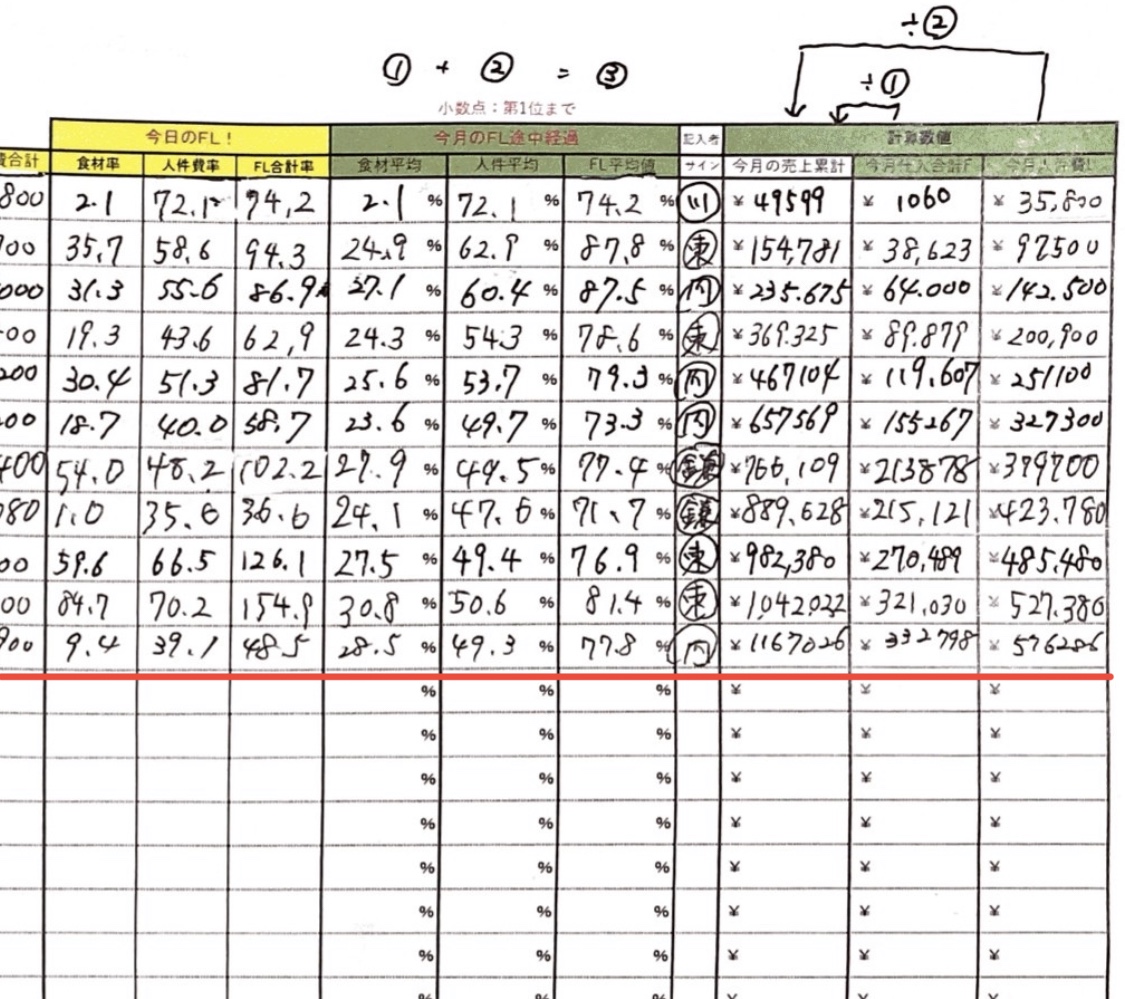 ÷②
① + ② = ③
÷①
小数点：第1位まで
今日のFL！ 今月のFL途中経過 記入者 計算数値
費合計 食材率 人件費率 FL合計率 食材平均 人件平均 FL平均値 サイン 今月の売上累計 今月仕入合計F 今月人件費L
800 2.1 72.1 74,2 2.1 % 72.1 % 74.2 % 川 ¥ 49599 ¥ 1060 ¥ 35,800
700 35,7 58,6 94.3 24.9 % 62.9 % 87,8 % 東 ¥ 154,781 ¥ 38,623 ¥ 97500
000 31.3 55.6 86.9 27.1 % 60.4 % 87.5 % 内 ¥ 235.675 ¥ 64.000 ¥ 142.500
00 19.3 43.6 62,9 24.3 % 54.3 % 78.6 % 東 ¥ 369.325 ¥ 89.879 ¥ 200,900
200 30.4 51.3 81.7 25.6 % 53.7 % 79.3 % 内 ¥ 467104 ¥ 119.607 ¥ 251100
200 18.7 40.0 58.7 23.6 % 49.7 % 73.3 % 内 ¥ 657569 ¥ 155267 ¥ 327300
400 54.0 48.2 102.2 27.9 % 49.5 % 77.4 % ¥ 766,109 ¥ 213878 ¥ 379700
780 1.0 35.6 36.6 24.1 % 47.6 % 71.7 % ¥ 889,628 ¥ 215,121 ¥ 423.780
00 59.6 66.5 126.1 27.5 % 49.4 % 76.9 % 東 ¥ 982,380 ¥ 270,489 ¥ 485.480
00 84.7 70.2 154.9 30.8 % 50.6 % 81.4 % 東 ¥ 1,042022 ¥ 321,030 ¥ 527.380
900 9.4 39.1 48.5 28.5 % 49.3 % 77.8 % 内 ¥ 1167026 ¥ 332798 ¥ 576286
% % % ¥ ¥ ¥
% % % ¥ ¥ ¥
% % % ¥ ¥ ¥
% % % ¥ ¥ ¥
% % % ¥ ¥ ¥
% % % ¥ ¥ ¥
% % % ¥ ¥ ¥
% % % ¥ ¥ ¥